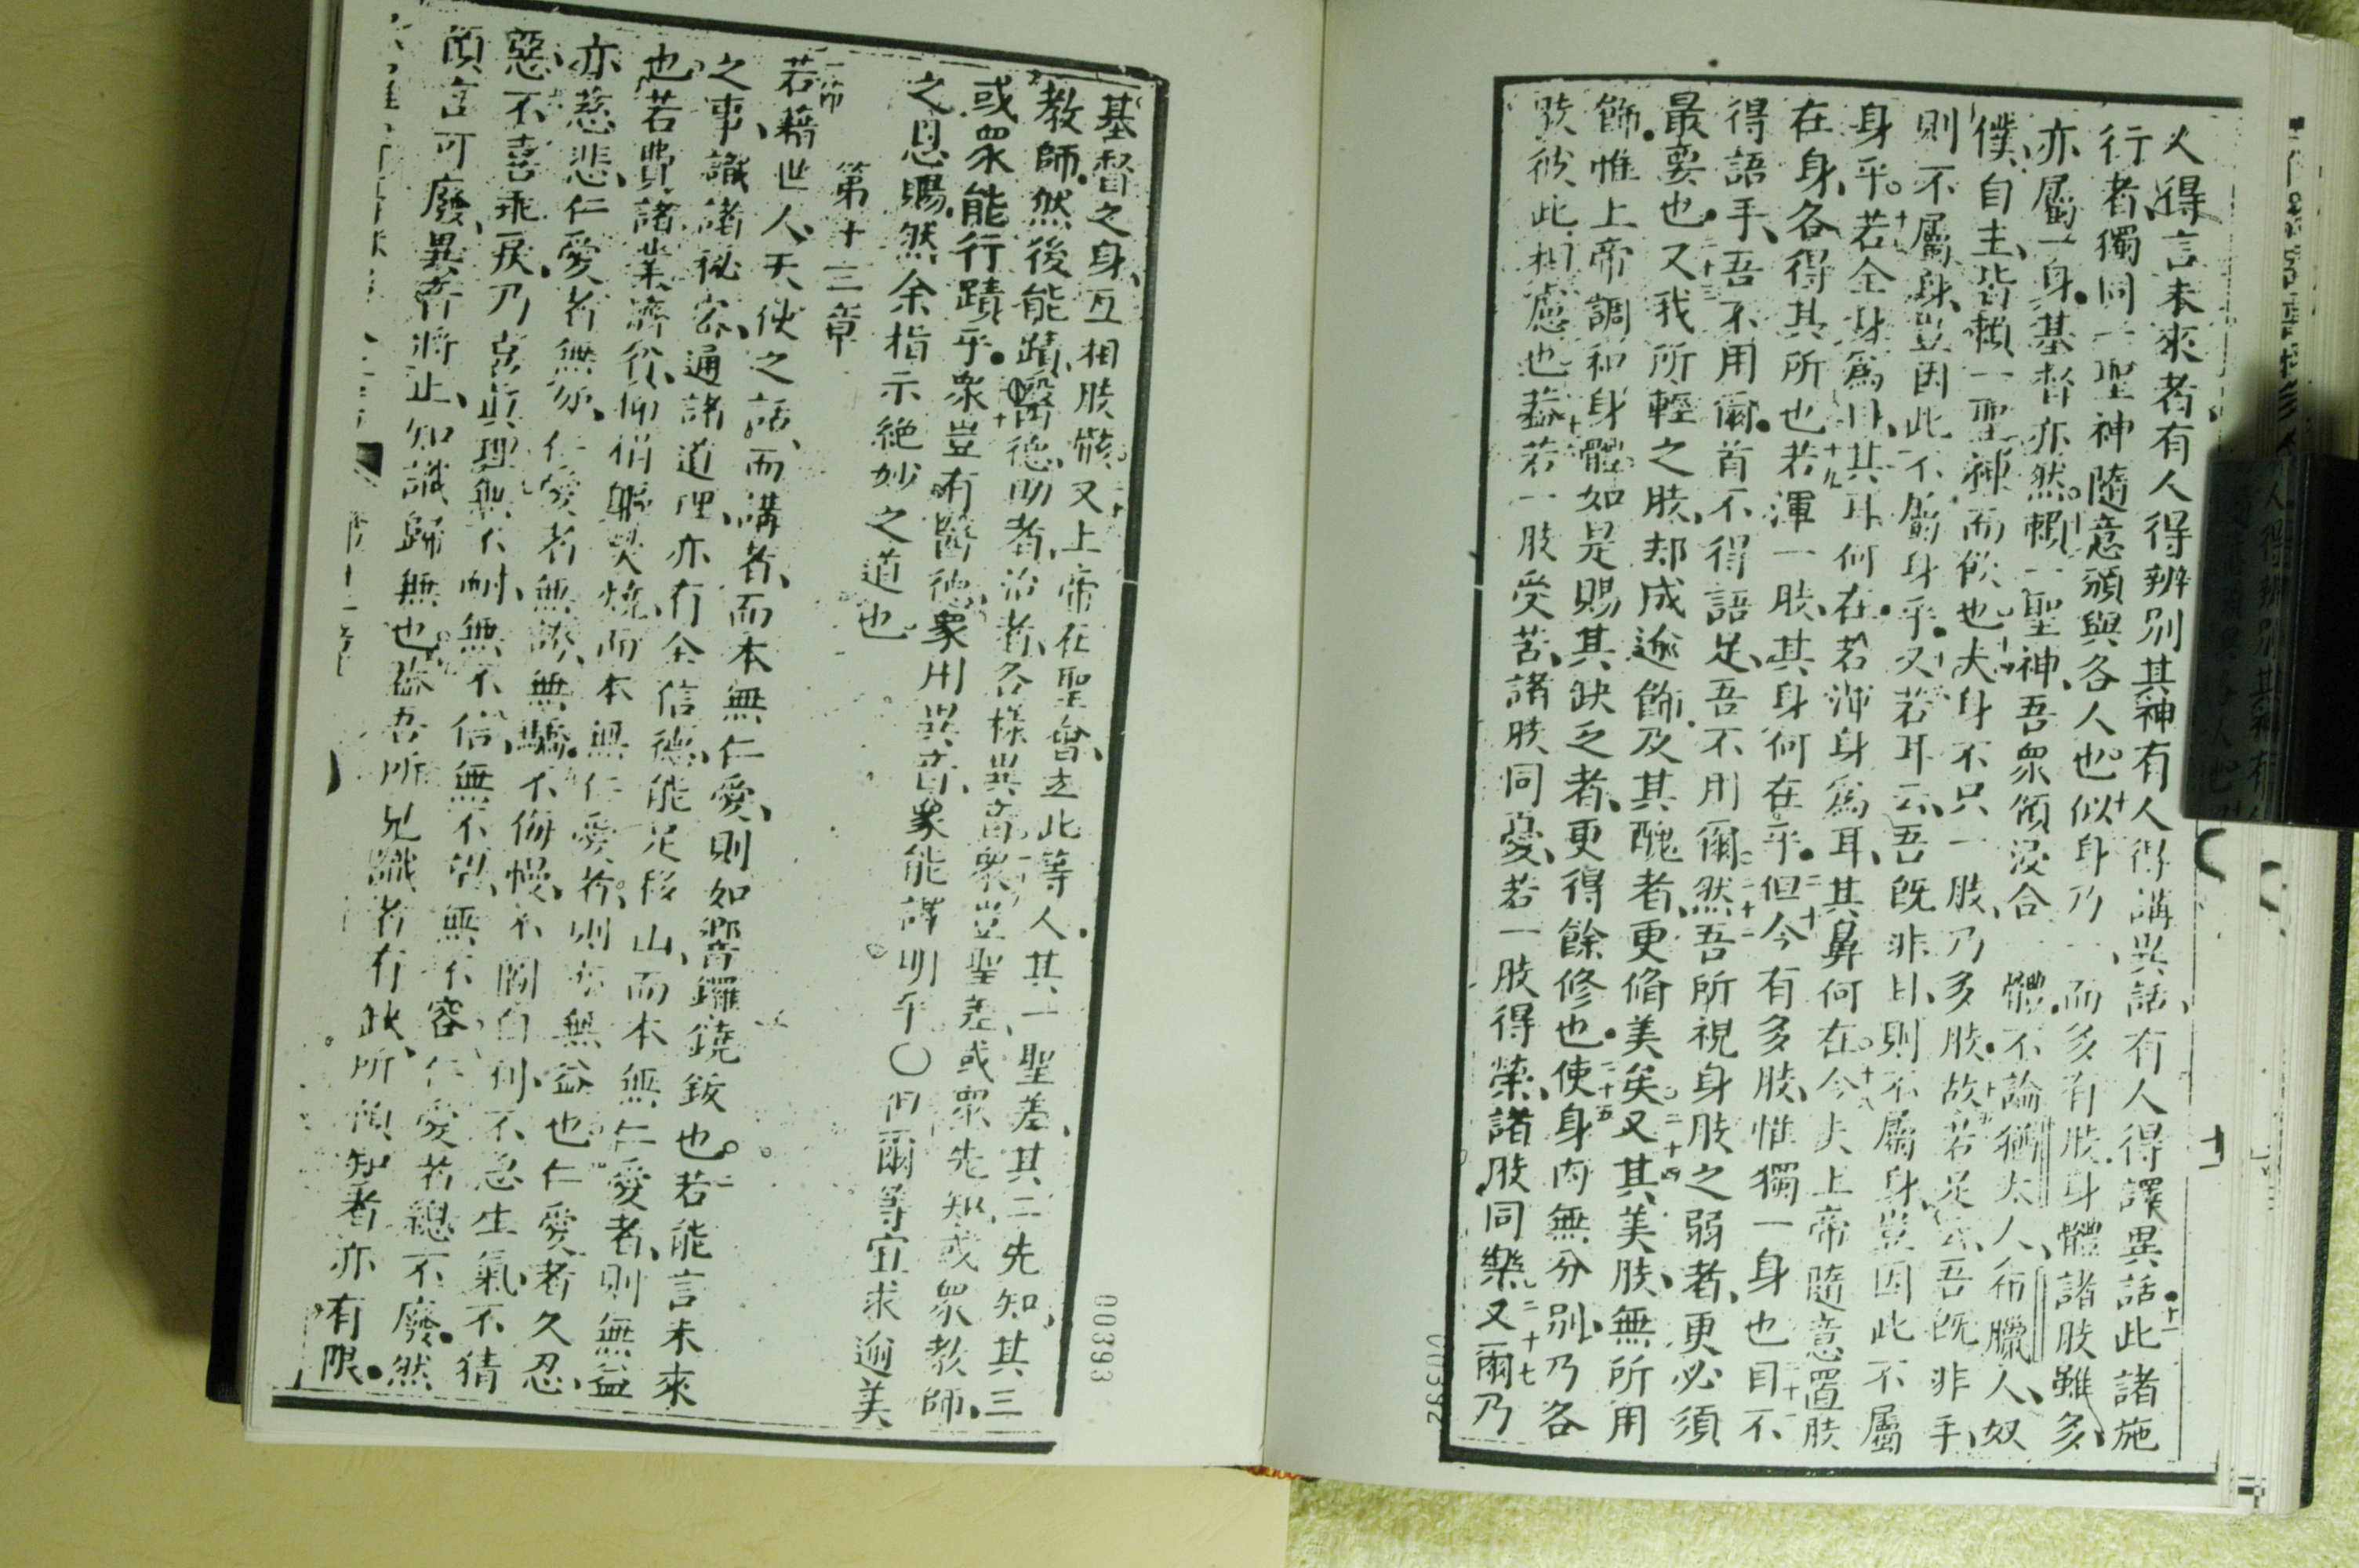 人得言未來者有人得辨別其神有人得講異話有人得譯異話十一此諸施
行者獨同一聖神隨意頒與各人也十二似身乃一而多有肢身體諸肢雖多
亦屬一身基督亦然十三賴一聖神吾眾領浸合一體不論猶太人希臘人奴
僕自主皆賴一聖神而飲也十四夫身不只一肢乃多肢十五故若足云吾既非手
則不屬身豈因此不屬身乎十六又若耳云吾既非目則不屬身豈因此不屬
身乎十七若全身為目其耳何在若渾身為耳其鼻何在十八今夫上帝隨意置肢
在身各得其所也十九若渾一肢其身何在乎二十但今有多肢惟獨一身也二十一目不
得語手吾不用爾首不得語足吾不用爾二十二然吾所視身肢之弱者更必須
最要也二十三又我所輕之肢却成逾飾及其醜者更脩美矣二十四又其美肢無所用
飾惟上帝調和身體如是賜其缺乏者更得餘修也二十五使身內無分別乃各
肢彼此相慮也蓋若一肢受苦諸肢同憂若一肢得榮諸肢同樂二十七又爾乃
00392
基督之身互相肢骸又上帝在聖會立此等人其一聖差其二先知其三
教師然後能蹟醫德助者治者各樣異音眾豈聖差或眾先知或眾教師
或眾能行蹟乎眾豈有醫德眾用異音眾能譯明乎〇但爾等宜求逾美
之恩賜然余指示絶妙之道也
第十三章
一節
若藉世人天使之話而講者而本無仁愛則如響鑼鐃鈸也二若能言未來
之事識諸秘密通諸道理亦有全信德能足移山而本無仁愛者則無益
也若費諸業濟貧抑捐軀焚燒而本無仁愛者則亦無益也仁愛者久忍
亦慈悲仁愛者無妒仁愛者無誇無驕不侮慢不圖自利不急生氣不猜
惡不喜乖戾乃喜真理無不耐無不信無不望無不容仁愛者總不廢然
預言可廢異音將止知識歸無也蓋吾所見識者有缺所預知者亦有限
00393